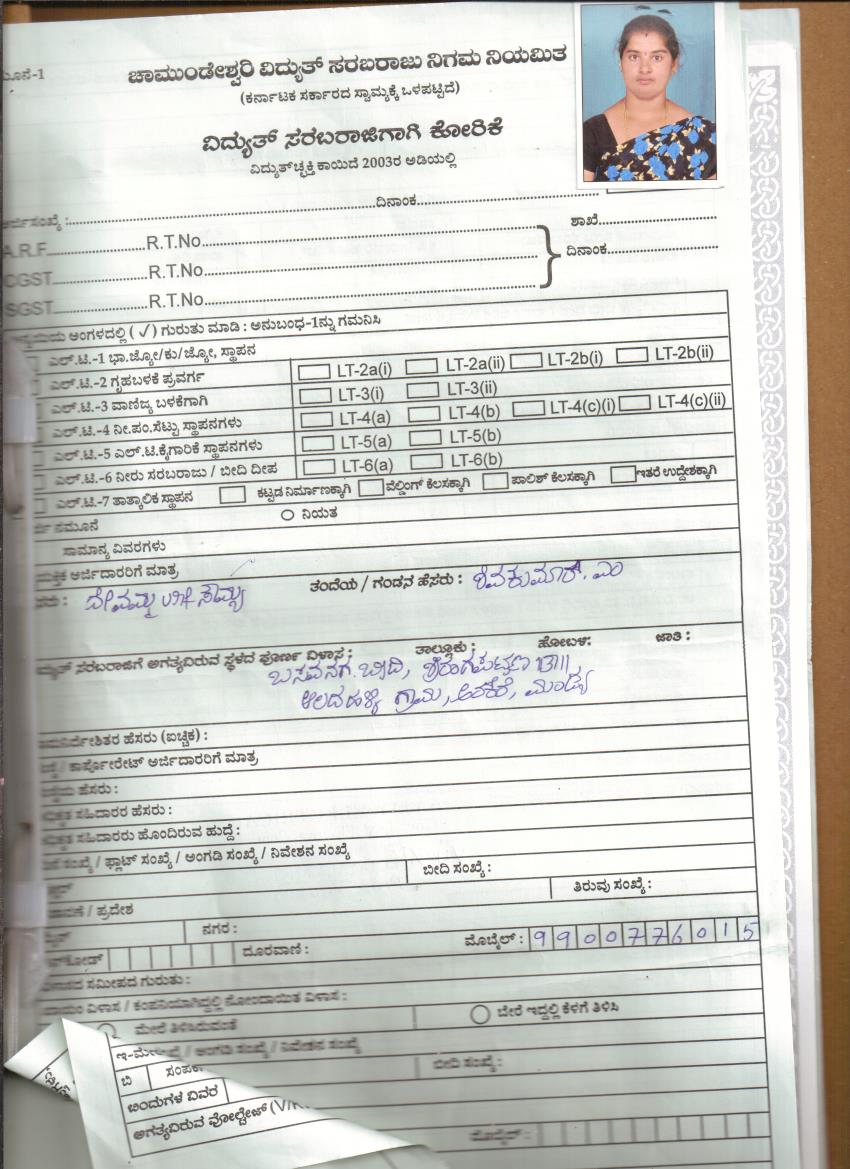 ಚಾಮುಂಡೇಶ್ವರಿ ವಿದ್ಯುತ್ ಸರಬರಾಜು ನಿಗಮ ನಿಯಮಿತ
(ಕರ್ನಾಟಕ ಸರ್ಕಾರದ ಸ್ವಾಮ್ಯಕ್ಕೆ ಒಳಪಟ್ಟಿದೆ)
ವಿದ್ಯುತ್ ಸರಬರಾಜಿಗಾಗಿ ಕೋರಿಕೆ
ವಿದ್ಯುತ್‌ಚ್ಛಕ್ತಿ ಕಾಯಿದೆ 2003ರ ಅಡಿಯಲ್ಲಿ
ದಿನಾಂಕ
A.R.F. R.T.No. ಶಾಖೆ
CGST R.T.No. ದಿನಾಂಕ
SGST R.T.No.
ಅಂಗಳದಲ್ಲಿ (✓) ಗುರುತು ಮಾಡಿ : ಅನುಬಂಧ-1ನ್ನು ಗಮನಿಸಿ
ಎಲ್.ಟಿ.-1 ಭಾ.ಜ್ಯೋ/ಕು/ಜ್ಯೋ, ಸ್ಥಾಪನ
ಎಲ್.ಟಿ.-2 ಗೃಹಬಳಕೆ ಪ್ರವರ್ಗ LT-2a(i) LT-2a(ii) LT-2b(i) LT-2b(ii)
ಎಲ್.ಟಿ.-3 ವಾಣಿಜ್ಯ ಬಳಕೆಗಾಗಿ LT-3(i) LT-3(ii)
ಎಲ್.ಟಿ.-4 ನೀ.ಪಂ.ಸೆಟ್ಟು ಸ್ಥಾಪನಗಳು LT-4(a) LT-4(b) LT-4(c)(i) LT-4(c)(ii)
ಎಲ್.ಟಿ.-5 ಎಲ್.ಟಿ.ಕೈಗಾರಿಕೆ ಸ್ಥಾಪನಗಳು LT-5(a) LT-5(b)
ಎಲ್.ಟಿ.-6 ನೀರು ಸರಬರಾಜು / ಬೀದಿ ದೀಪ LT-6(a) LT-6(b)
ಎಲ್.ಟಿ.-7 ತಾತ್ಕಾಲಿಕ ಸ್ಥಾಪನ ಕಟ್ಟಡ ನಿರ್ಮಾಣಕ್ಕಾಗಿ ವೆಲ್ಡಿಂಗ್ ಕೆಲಸಕ್ಕಾಗಿ ಪಾಲಿಶ್ ಕೆಲಸಕ್ಕಾಗಿ ಇತರೆ ಉದ್ದೇಶಕ್ಕಾಗಿ
ನಮೂನೆ ನಿಯತ
ಸಾಮಾನ್ಯ ವಿವರಗಳು
ಅರ್ಜಿದಾರರಿಗೆ ಮಾತ್ರ
ದೇವಮ್ಮ ತಂದೆಯ / ಗಂಡನ ಹೆಸರು : ಶಿವಕುಮಾರ್. ಎಂ
ಸರಬರಾಜಿಗೆ ಅಗತ್ಯವಿರುವ ಸ್ಥಳದ ಪೂರ್ಣ ವಿಳಾಸ : ತಾಲ್ಲೂಕು : ಹೋಬಳಿ: ಜಾತಿ :
ಗ್ರಾಮ,
ಹೆಸರು (ಐಚ್ಛಿಕ) :
/ ಕಾರ್ಪೋರೇಟ್ ಅರ್ಜಿದಾರರಿಗೆ ಮಾತ್ರ
ಹೆಸರು :
ಸಹಿದಾರರ ಹೆಸರು :
ಸಹಿದಾರರು ಹೊಂದಿರುವ ಹುದ್ದೆ :
ಸಂಖ್ಯೆ / ಫ್ಲಾಟ್ ಸಂಖ್ಯೆ / ಅಂಗಡಿ ಸಂಖ್ಯೆ / ನಿವೇಶನ ಸಂಖ್ಯೆ
ಬೀದಿ ಸಂಖ್ಯೆ :
ತಿರುವು ಸಂಖ್ಯೆ :
/ ಪ್ರದೇಶ
ನಗರ :
ದೂರವಾಣಿ : ಮೊಬೈಲ್ : 9900776015
ಸಮೀಪದ ಗುರುತು :
ವಿಳಾಸ / ಕಂಪನಿಯಾಗಿದ್ದಲ್ಲಿ ನೋಂದಾಯಿತ ವಿಳಾಸ :
ಮೇಲೆ ತಿಳಿಸಿರುವಂತೆ ಬೇರೆ ಇದ್ದಲ್ಲಿ ಕೆಳಗೆ ತಿಳಿಸಿ
/ ಅಂಗಡಿ ಸಂಖ್ಯೆ / ನಿವೇಶನ ಸಂಖ್ಯೆ
ಬೀದಿ ಸಂಖ್ಯೆ :
ಬಿ
ವಿವರ
ಅಗತ್ಯವಿರುವ ವೋಲ್ಟೇಜ್
ಮೊಬೈಲ್ :